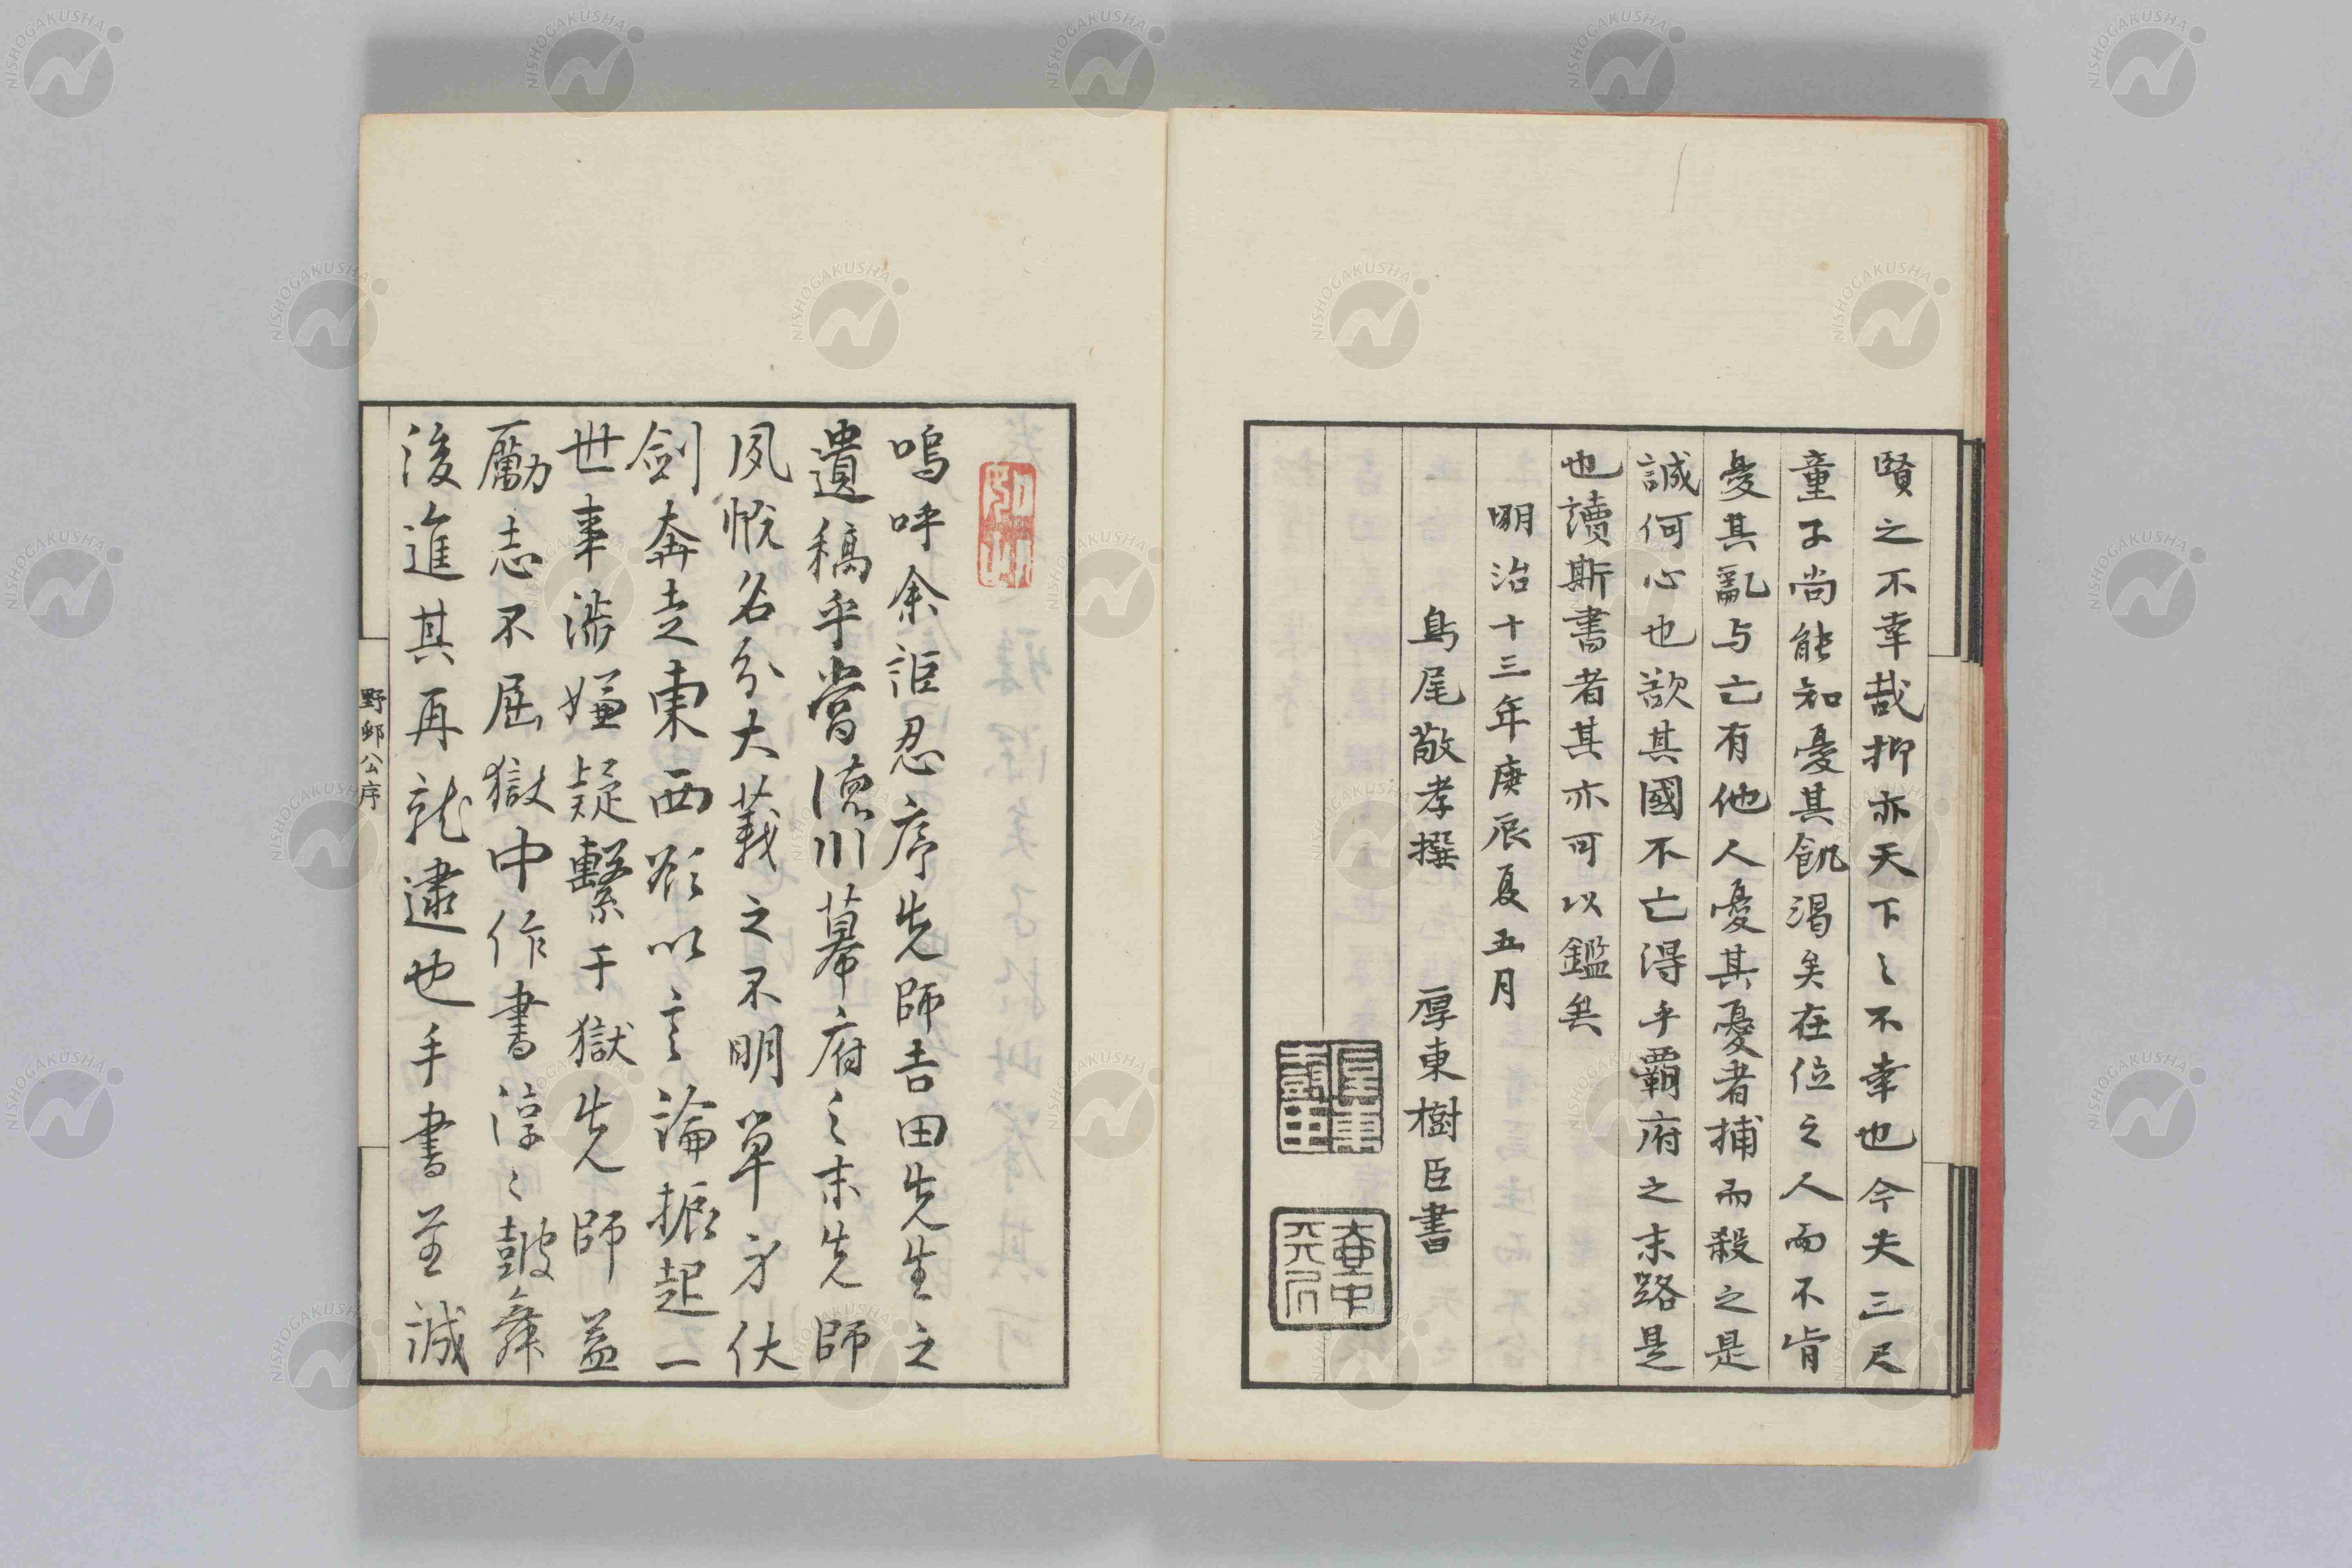 賢之不幸哉抑亦天下之不幸也今夫三尺
童子尚能知憂其飢渇矣在位之人而不肯
憂其亂与亡有他人憂其憂者捕而殺之是
誠何心也欲其國不亡得乎覇府之末路是
也讀斯書者其亦可以鑑矣
明治十三年庚辰夏五月
鳥尾敬孝撰 厚東樹臣書
嗚呼余詎忍序先師吉田先生之
遺稿乎當德川幕府之末先師
夙慨名分大義之不明單身伏
劍奔走東西欲以言論振起一
世事渉嫌疑繫于獄先師益
勵志不屈獄中作書淳々皷舞
後進其再就逮也手書至誠
野邨公序
NISHOGAKUSHA